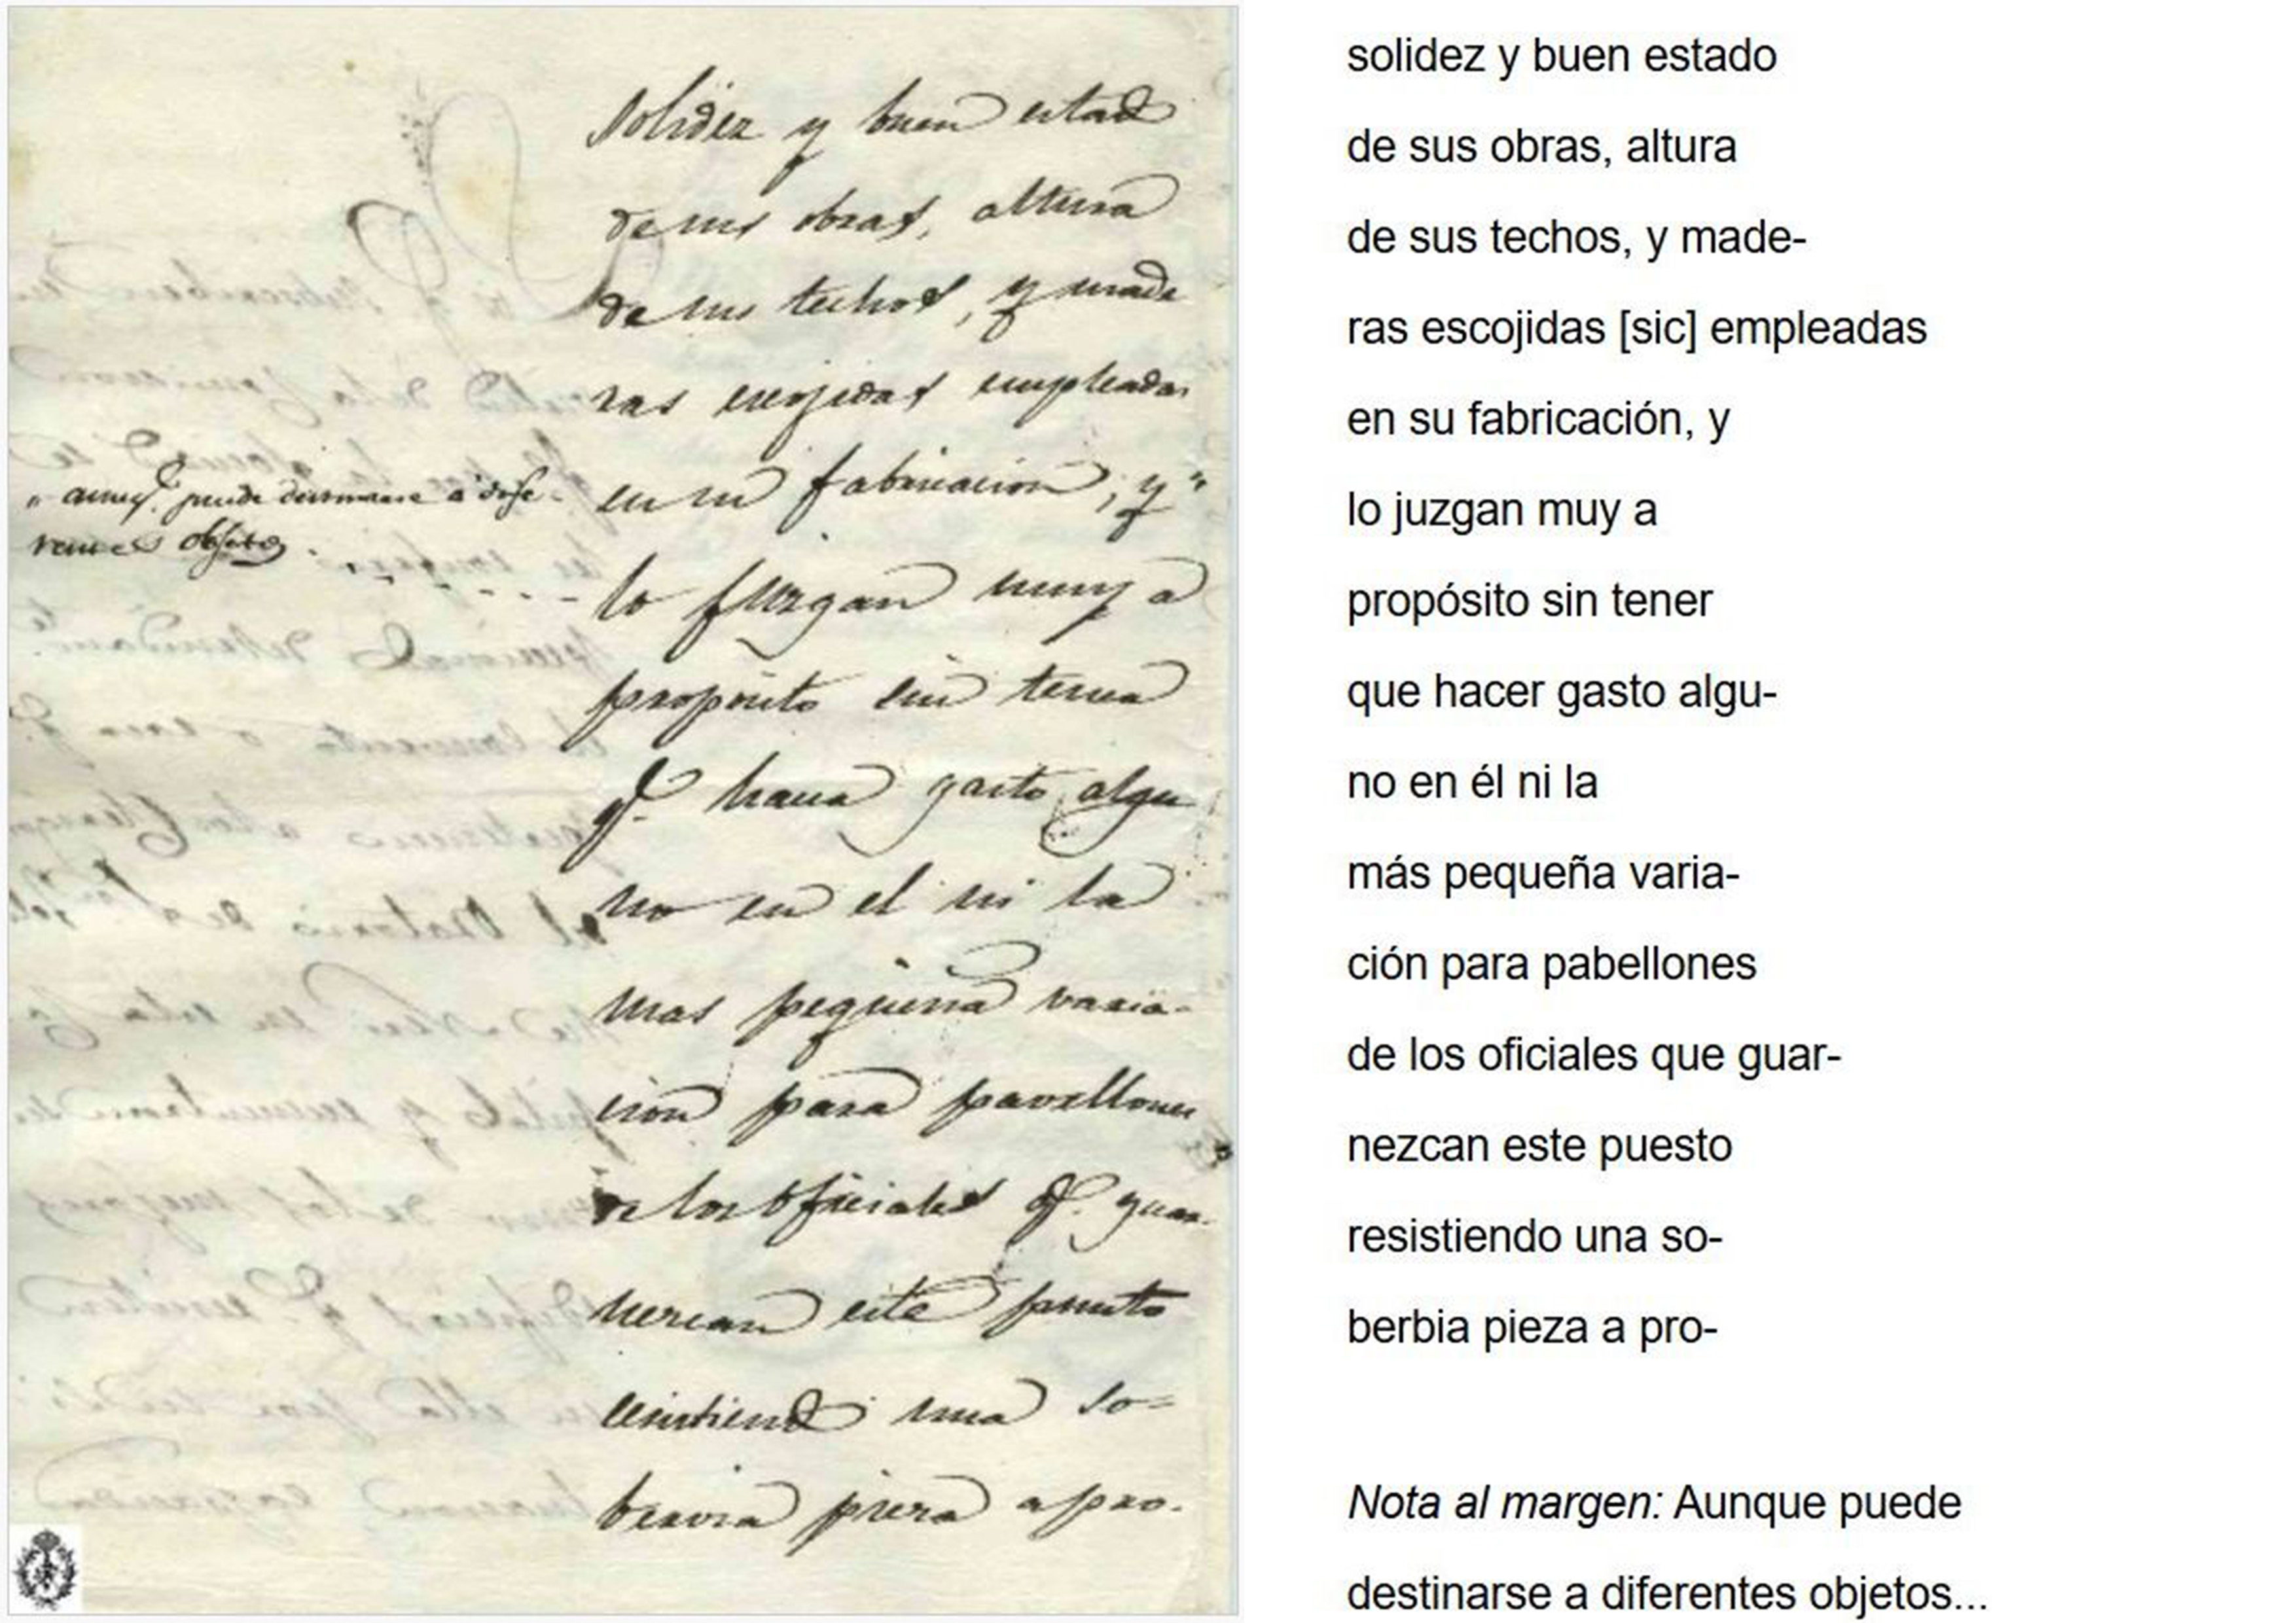 solidez y buen estado
de sus obras, altura
de sus techos, y made
ras escojidas empleadas
en su fabricacion, y "
" aunq.e puede destinarse a dife-
rentes objetos.
lo juzgan muy a
proposito sin tener
q.e hacer gasto algu
no en el ni la
mas pequeña varia-
cion para pavellones
de los oficiales q.e guar-
nezcan este puesto
una so=
bervia pieza a pro-
solidez y buen estado
de sus obras, altura
de sus techos, y made-
ras escojidas [sic] empleadas
en su fabricación, y
lo juzgan muy a
propósito sin tener
que hacer gasto algu-
no en él ni la
más pequeña varia-
ción para pabellones
de los oficiales que guar-
nezcan este puesto
resistiendo una so-
berbia pieza a pro-
Nota al margen: Aunque puede
destinarse a diferentes objetos...